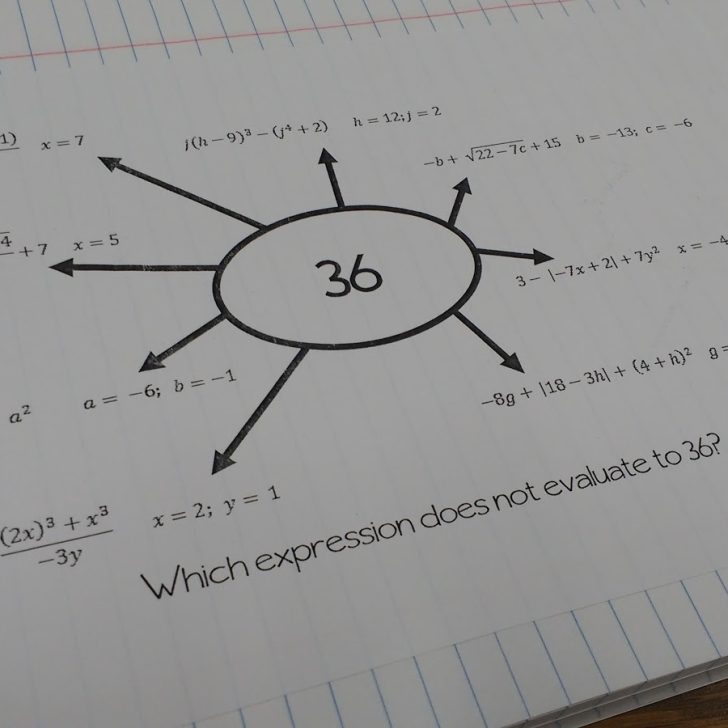 1) x = 7
j(h − 9)³ − (j⁴ + 2) h = 12; j = 2
−b + √(22 − 7c) + 15 b = −13; c = −6
4 + 7 x = 5
36
3 − |−7x + 2| + 7y² x = −4
a² a = −6; b = −1
−8g + |18 − 3h| + (4 + h)² g =
(2x)³ + x³
−3y
x = 2; y = 1
Which expression does not evaluate to 36?